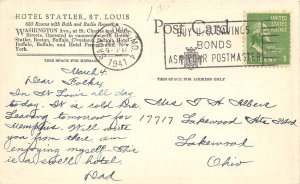 HOTEL STATLER, ST. LOUIS
650 Rooms with Bath and Radio Reception
WASHINGTON AVE., at St. Charles and Ninth
Streets. Operated in connection with Hotels
Statler, Boston, Buffalo, Cleveland, Detroit, Hotel
Buffalo, Buffalo, and Hotel Pennsylvania, New
York.
THIS SPACE FOR MESSAGE
Post Card
MO.
1941
BUY U.S. SAVINGS
BONDS
ASK YOUR POSTMASTER
THIS SPACE FOR ADDRESS ONLY
March 4
Dear Folks
In St Louis all day
today. It is cold
Leaving tomorrow for
Memphis. Will write
you from there am
enjoying myself. This
is a swell hotel
Dad
Mrs T H Albers
17717 Lakewood Hts Blvd
Lakewood
Ohio